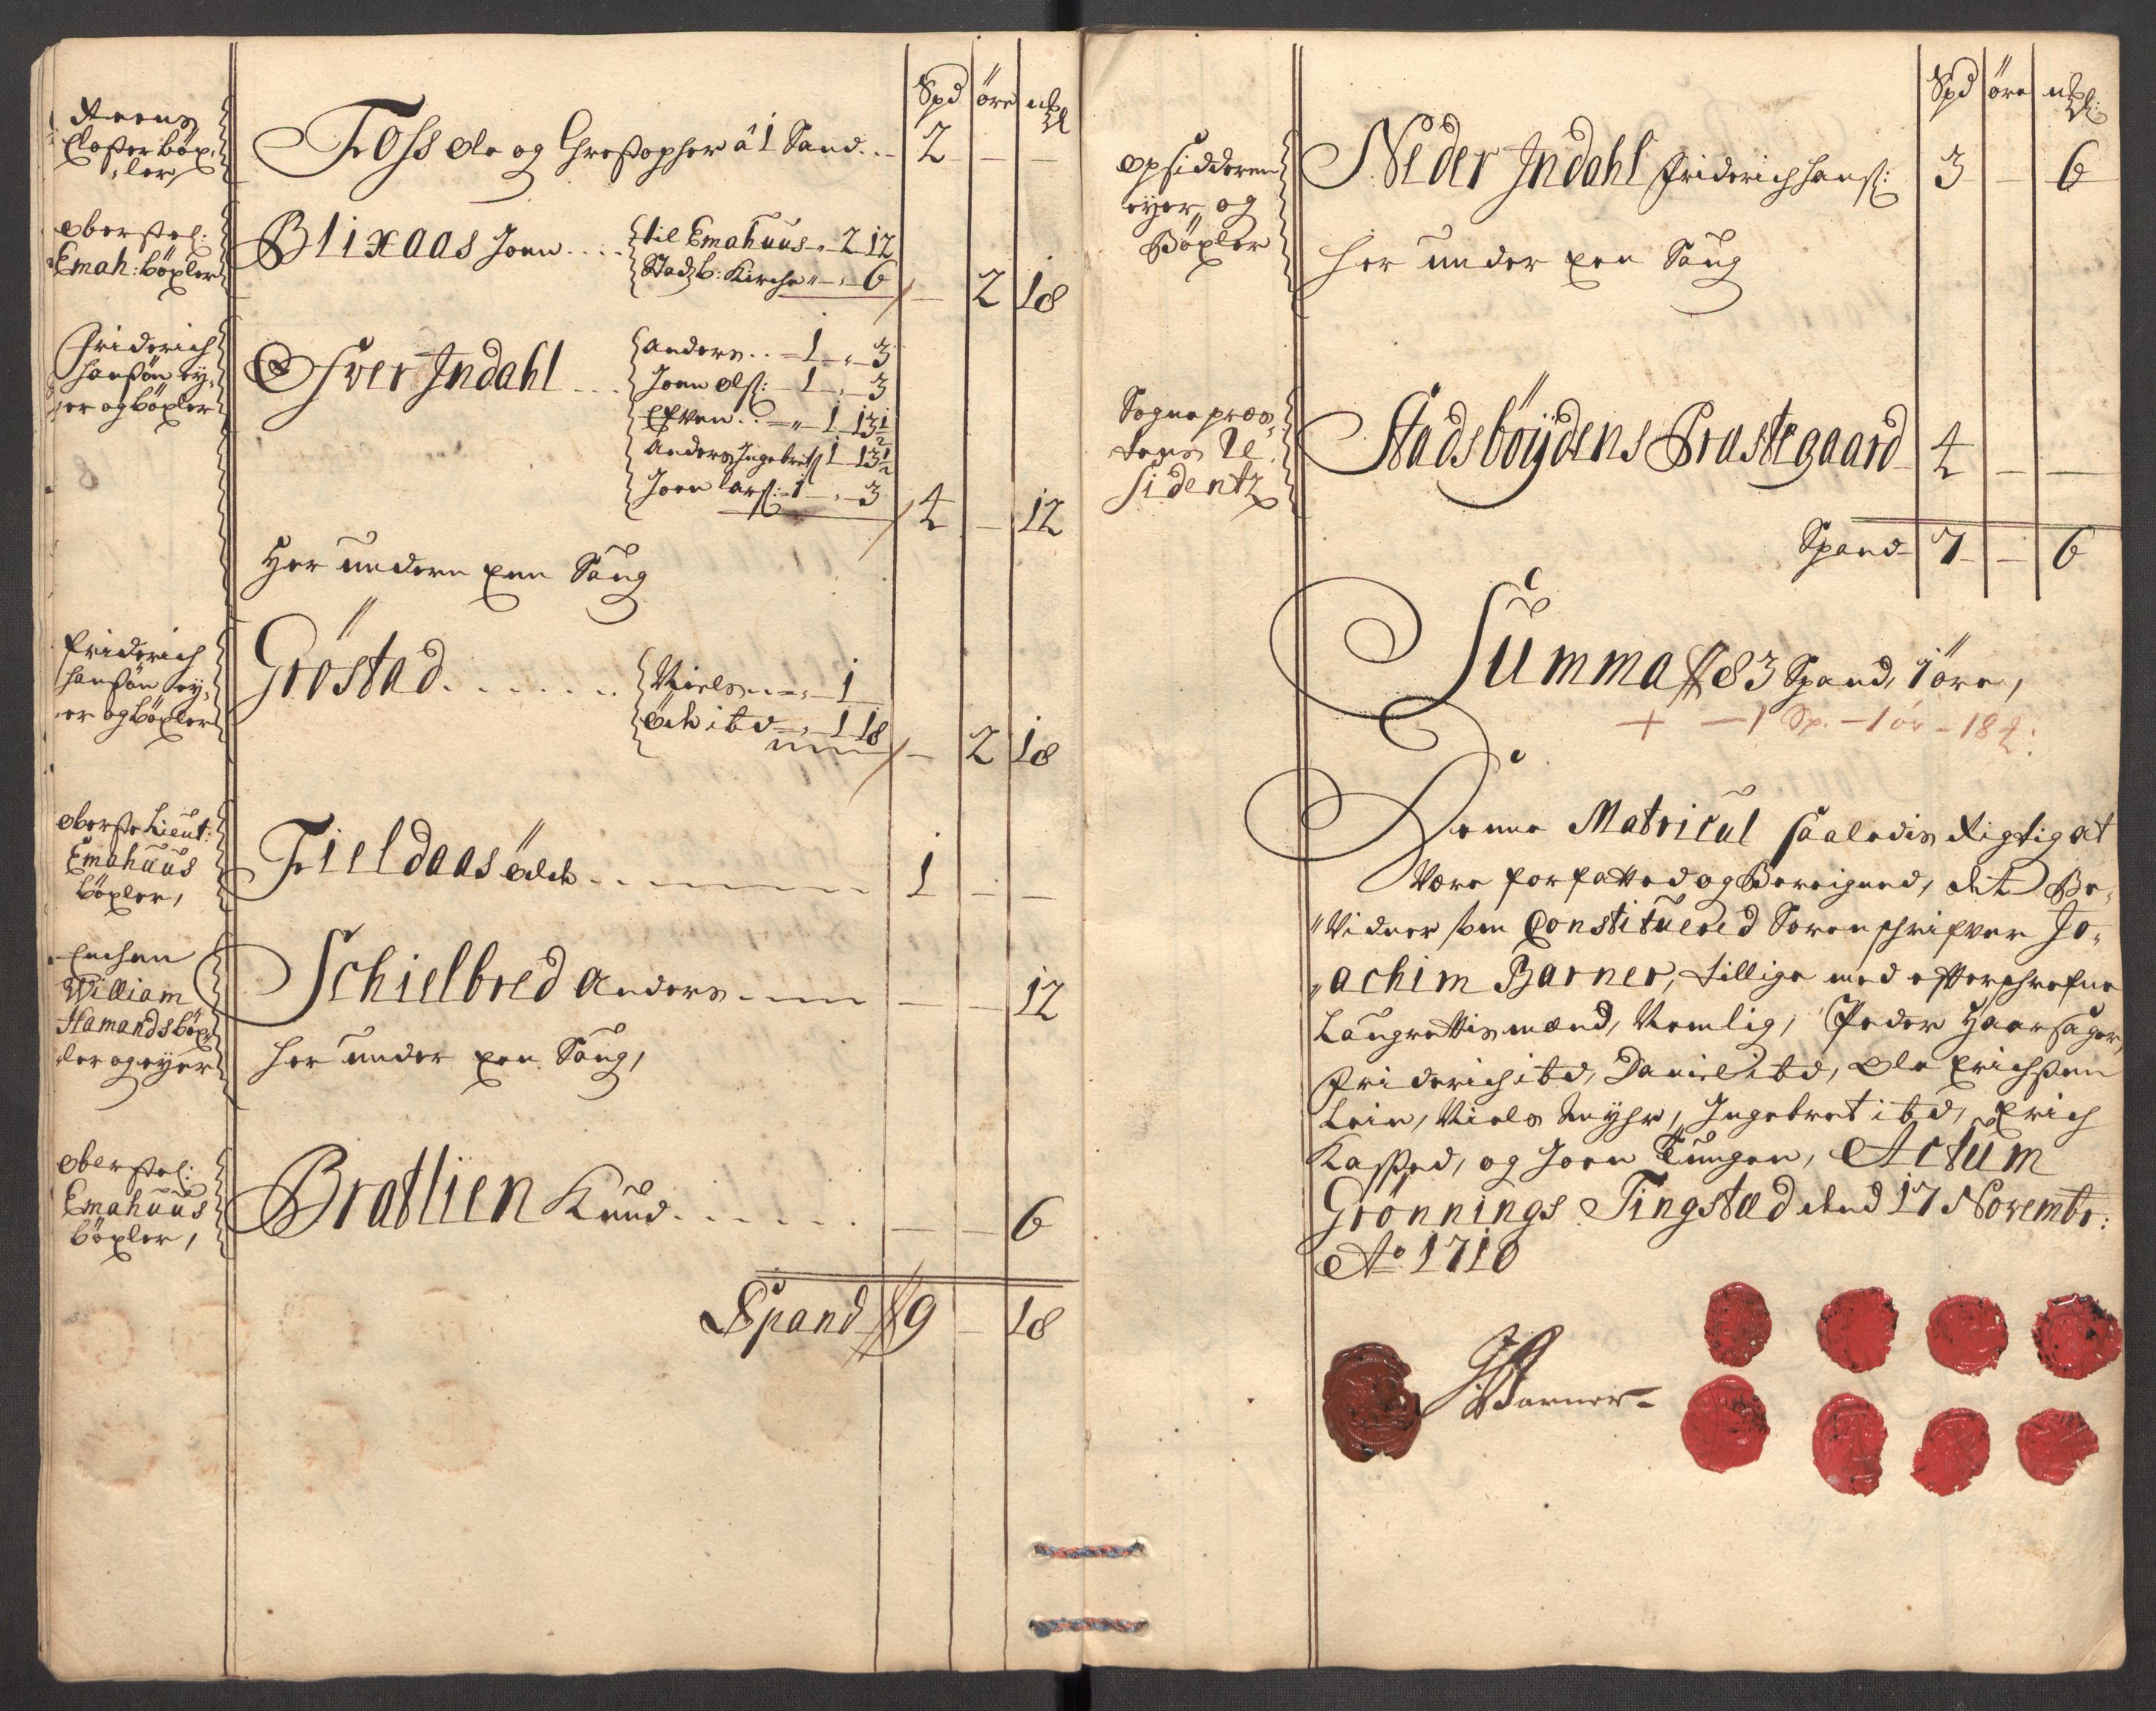 Spd öre mkl
Reens
Closter böx,
ler
Foss Ole og Chrestopher â 1 Sand. . . 2 — —
Oberstel:
Emah: böxler
Blixaas Joen . . . . til Emahuus — 2 12
Stadsb: Kirche — 6
— 2 18
Friderich
Hansön ey,
er og böxler
Ofver Indahl . . .
Anders . . — 1 — 3
Joen Ols: — 1 — 3
Efven . . — 1 13½
Anders Ingebrets 1 13½
Joen Lars: — 1 — 3
4 — 12
Her undern een Saug
Friderich
Hansön ey,
er og böxler
Gröstad . . . . . . . Niels . . — 1
Och ibd — 1 18
— 2 18
Oberste Lieut:
Emahuus
böxler,
Fieldaas öde . . — 1 — —
William
Hamands böx,
ler og eyer
Schielbred Anders . — — — 12
her under een Saug,
Oberstel:
Emahuus
böxler,
Bratlien Knud . . . . . . — — 6
Spand 9 — 18
Spd öre mkl:
Opsidderen
eyer og
Böxler
Neder Indahl Friderich Hans: 3 — 6
her under een Saug
Sogne præs,
tens Re
sidentz
Stadsböÿdens Præstegaard 4 — —
Spand 7 — 6
Summa 83 Spand, 1 öre,
+ — 1 Sp. — 1 ör — 18 l:
Denne Matricul saaledis Rigtig at
Være forfatted og Beregned, det Be,
Vidner som Constituered Sorenschrifver Jo,
achim Barner, tillige med efterschrefne
Laugrettismænd, Nemlig, Peder Haarsager,
Friderich ibd, Daniel ibd, Ole Erichsen
Lein, Niels Myhr, Ingebret ibd, Erich
Kassed, og Joen Tungen, Actum
Grönnings Tingstæd dend 17 Novembr:
Ao 1710
J Barner